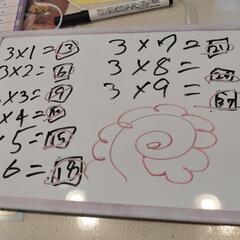 3×1=3
3×2=6
×3=9
×4=
×5=15
6=18
3×7=21
3×8=
3×9=27